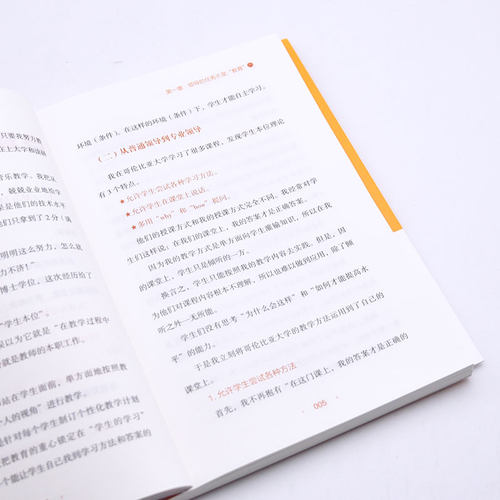 只要我努力教
往上大学和读研
音乐教学。我把
，兢兢业业地给学
是是他们的技术水平
他们只拿了2分（满
明明这么努力，怎么就
力不济！”
博士学位。这次经历给了
“学生本位”。
误以为它就是“在教学过程中
得就是教师的本职工作。
站在学生面前，单方面地按照教
个人的视角”进行教学。
针对每个学生制订个性化教学计划
把教育的重心锁定在“学生的学习”
个能让学生自己找到学习方法和答案的
第一章 领导的任务不是“教育”
环境（条件）。在这样的环境（条件）下，学生才能自主学习。
（二）从普通领导到专业领导
我在哥伦比亚大学学习了很多课程，发现学生本位理论
有3个特点。
★允许学生尝试各种学习方法。
★允许学生在课堂上说话。
★多用“why”和“how”提问。
他们的授课方式和我的授课方式完全不同。我经常对学
生们这样说：在我们的课堂上，我的答案才是正确答案。
因为我的教学方式是单方面向学生灌输知识，所以在我
的课堂上，学生只是倾听的一方。
换言之，学生只能按照我的教学内容去实践。但是，因
为他们对课程内容根本不理解，所以也难以做到应用，除了倾
听之外一无所能。
学生们没有思考“为什么会这样”和“如何才能提高水
平”的能力。
于是我立刻将哥伦比亚大学的教学方法运用到了自己的
课堂上。
1.允许学生尝试各种方法
首先，我不再抱有“在这门课上，我的答案才是正确的
005